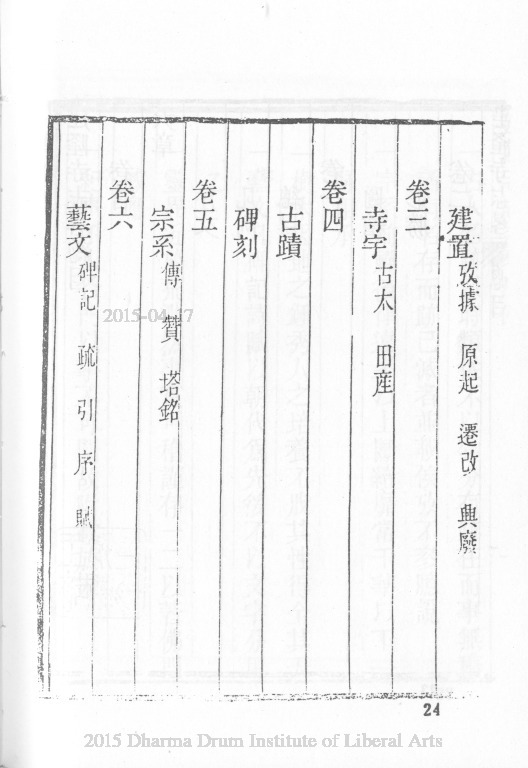 建置攷據 原起 遷改 興廢
卷三
寺宇古太 田産
卷四
古蹟
碑刻
卷五
宗系傳 贊 塔銘
卷六
藝文碑記 疏 引 序 賦
24
2015-04-17
2015 Dharma Drum Institute of Liberal Arts